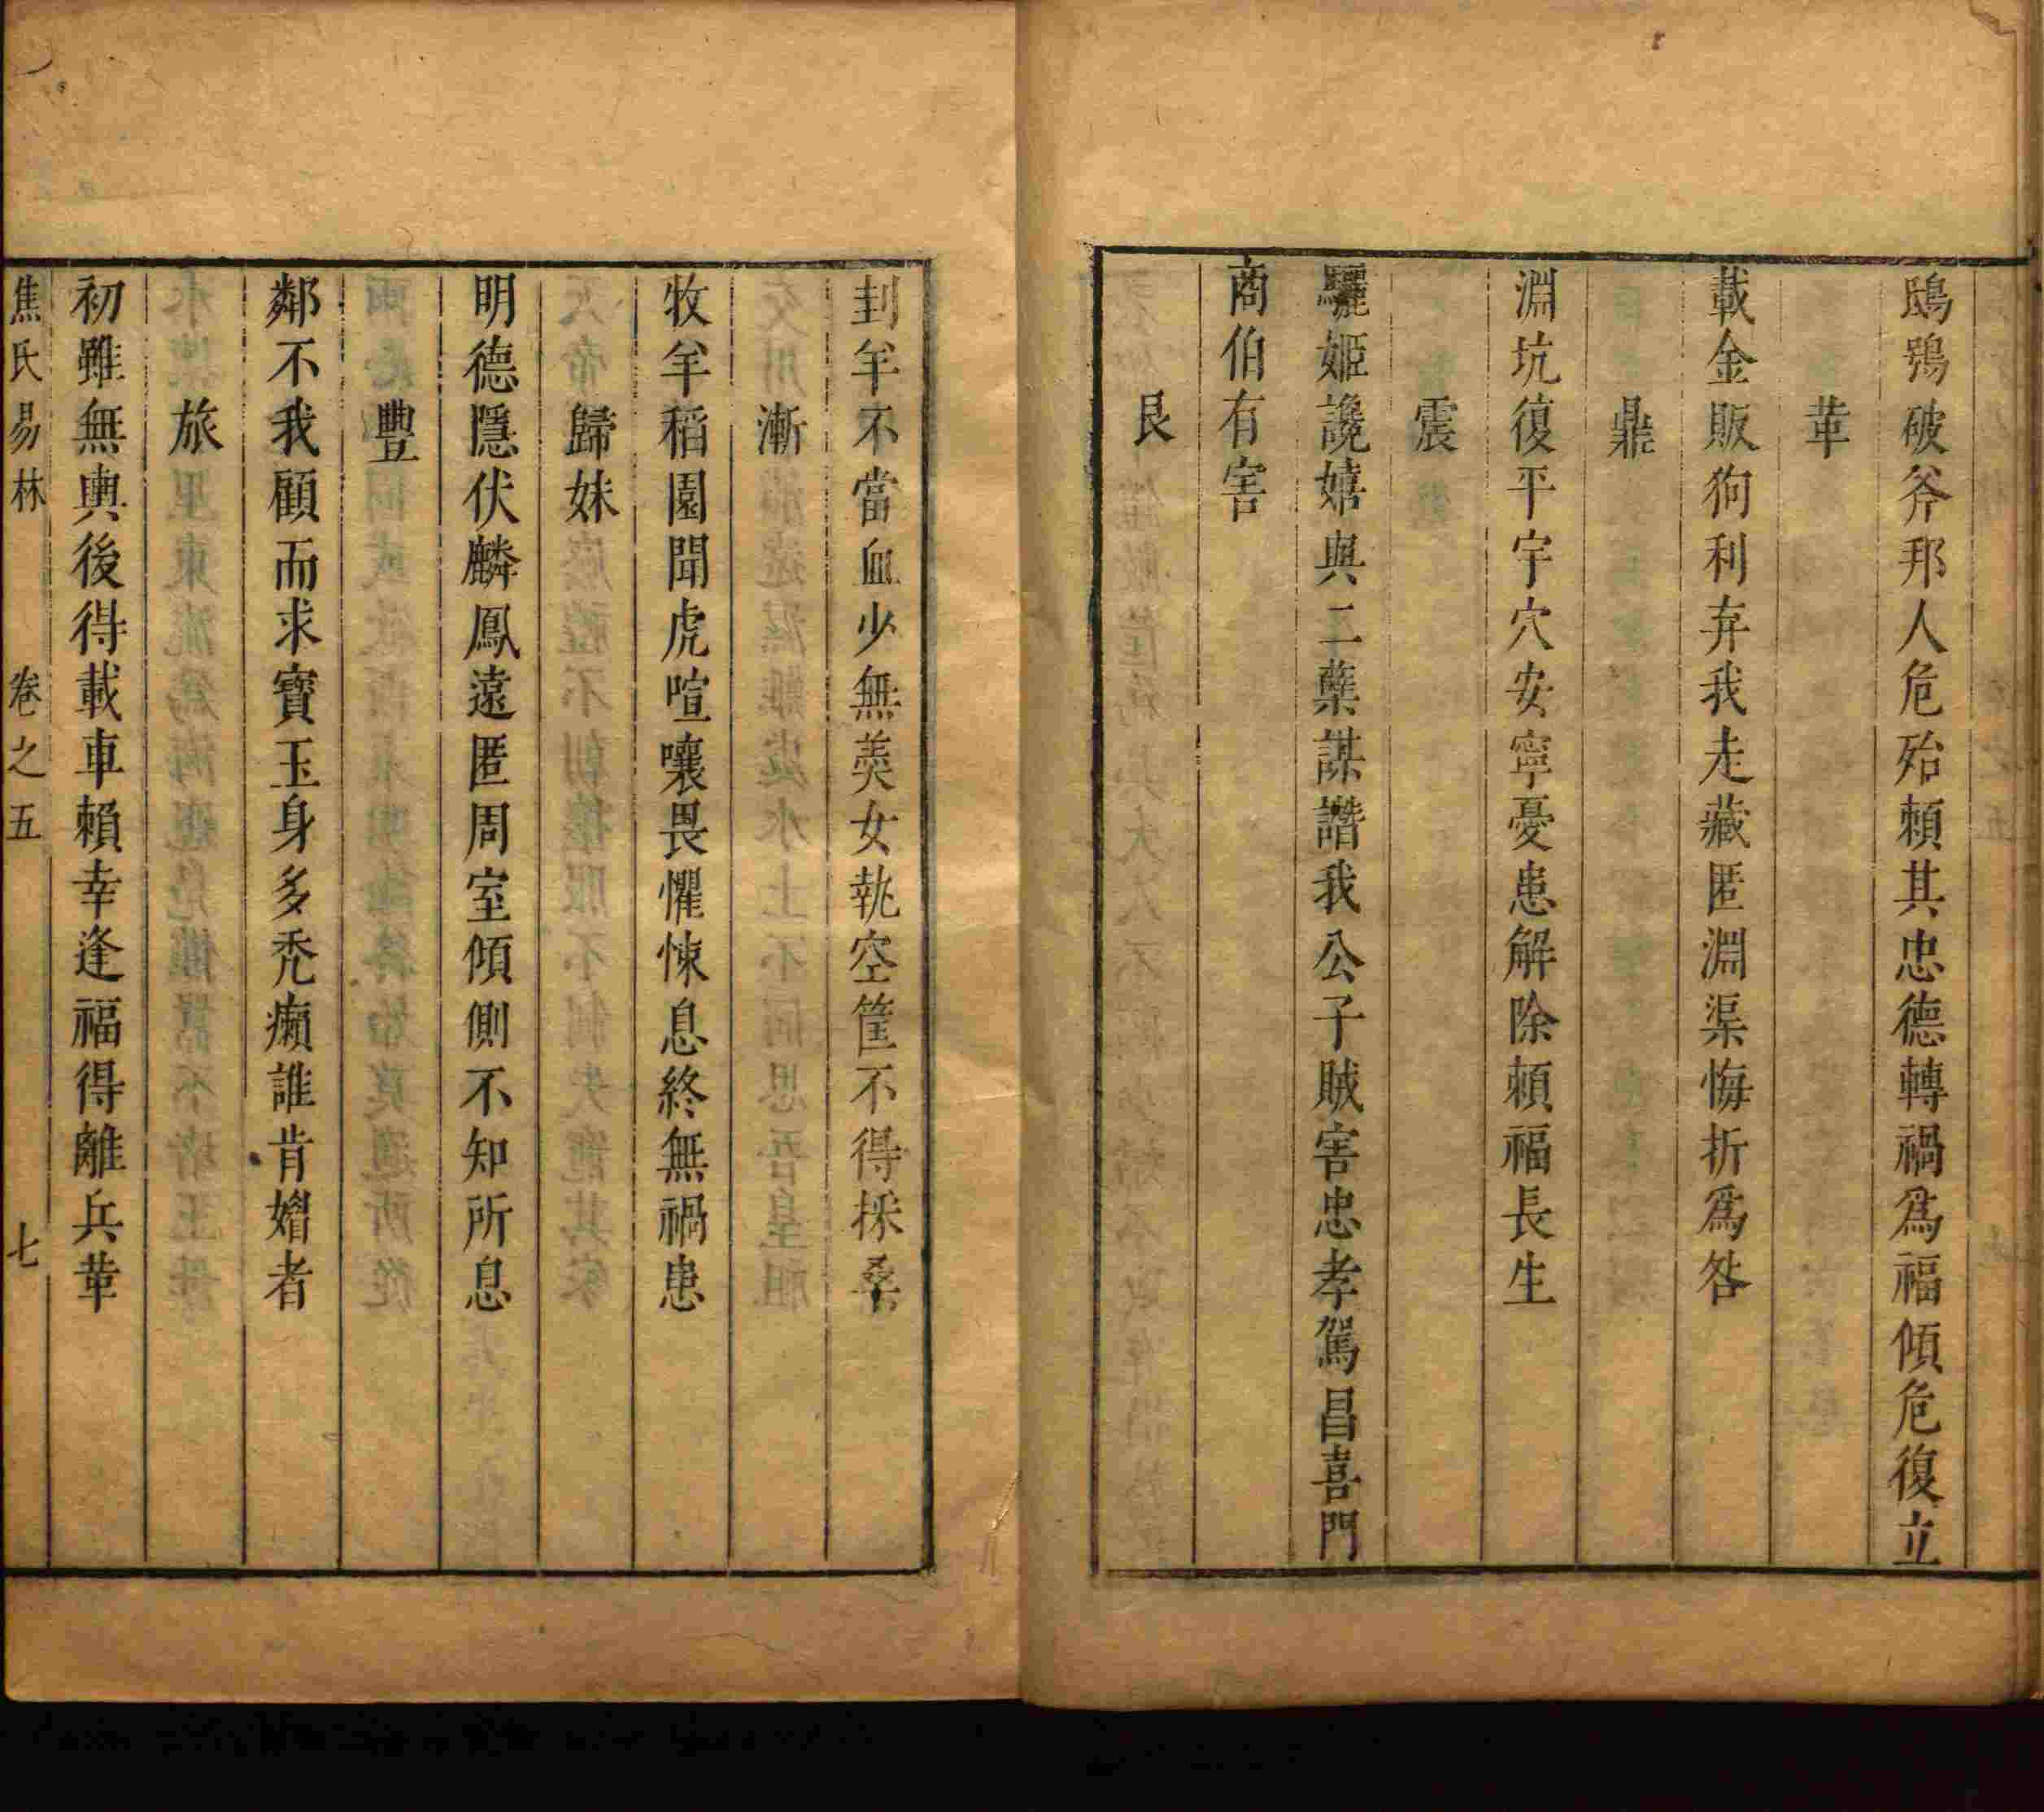 鴟鴞破斧邦人危殆頼其忠德轉禍爲福傾危復立
革
載金販狗利弃我走藏匿淵渠悔折爲咎
鼎
淵坑復平宇穴安寧憂患解除頼福長生
震
驪姬讒嬉與二孽謀譖我公子賊害忠孝駕昌喜門
商伯有害
艮
刲羊不當血少無羮女執空筐不得採桑
漸
牧羊稻園聞虎喧嚷畏懼悚息終無禍患
歸妹
明德隱伏麟鳳遠匿周室傾側不知所息
豐
鄰不我顧而求寶玉身多禿癩誰肯媚者
旅
初雖無輿後得載車賴幸逢福得離兵革
焦氏易林 卷之五 七